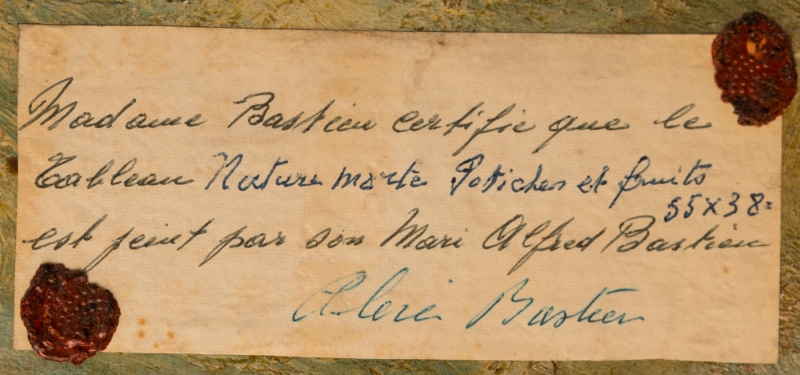 Madame Bastien certifie que le
Tableau Nature morte Potiches et fruits
55x38=
est peint par son Mari Alfred Bastien
Bastien